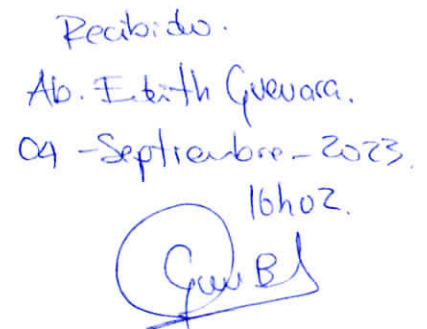 Recibido.
Ab. Edith Guevara.
04 -Septiembre- 2023.
16h02.